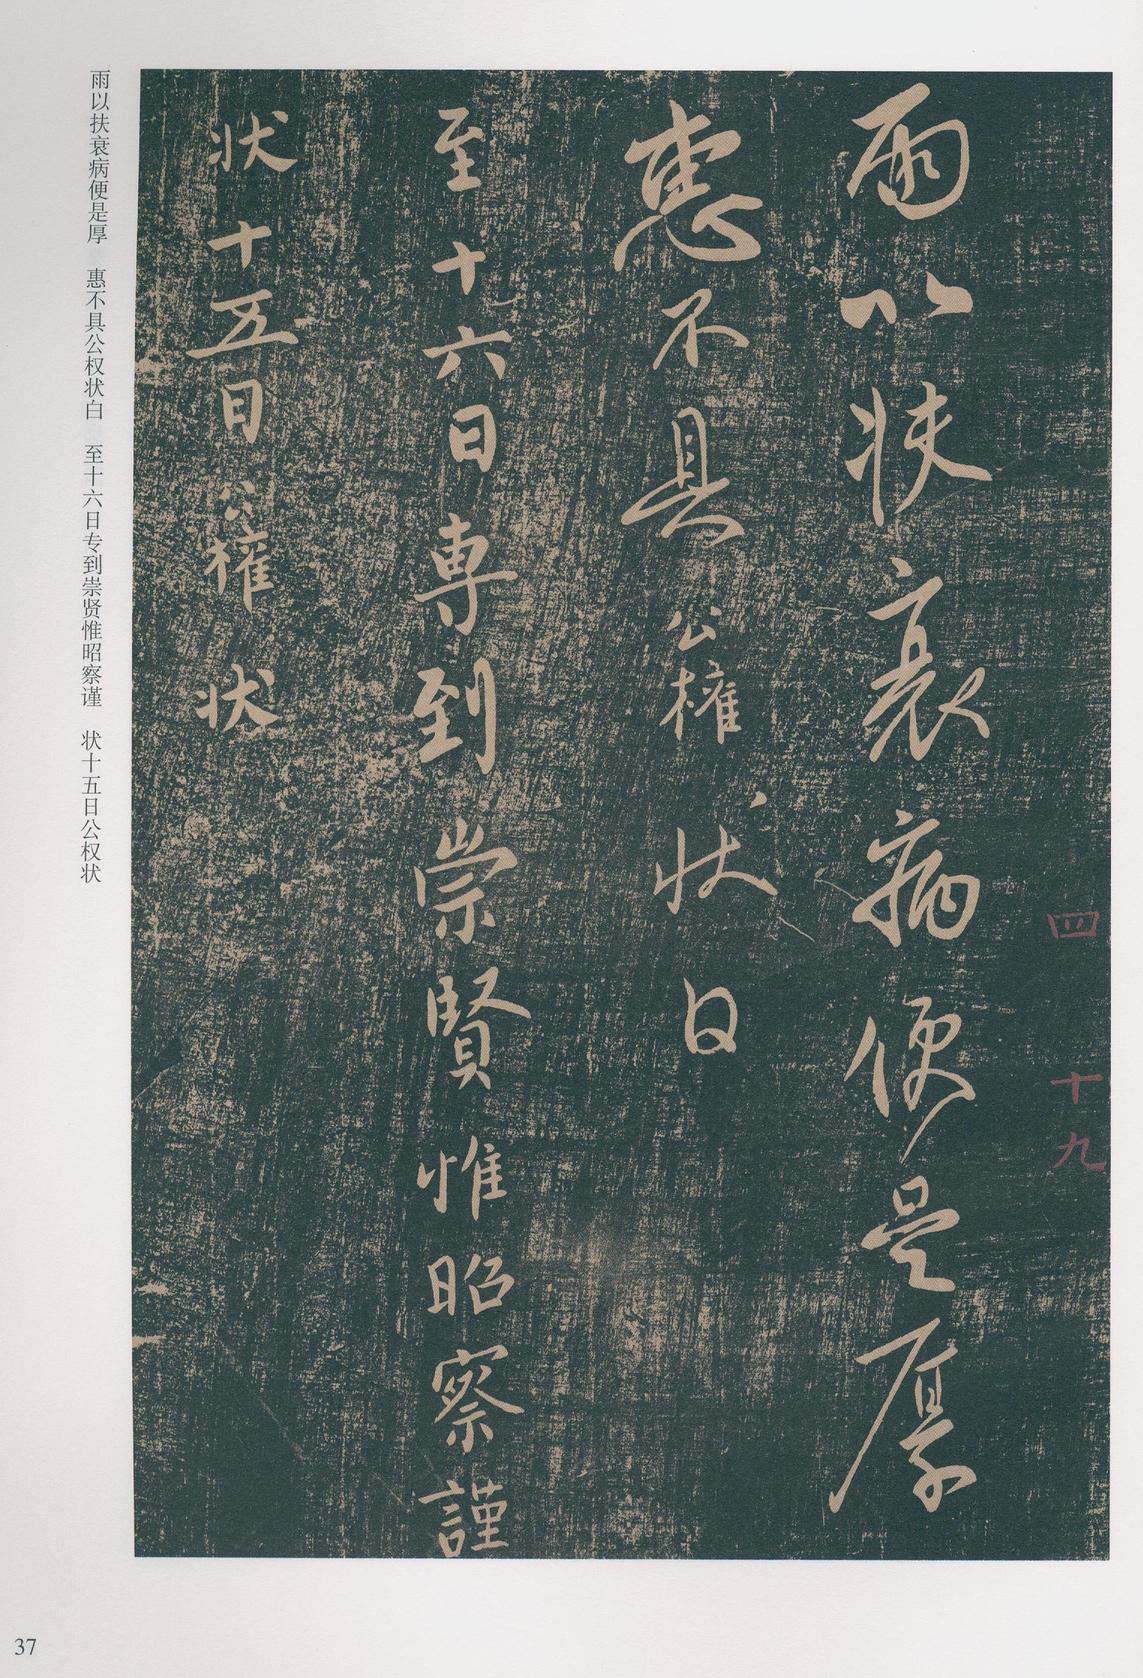 雨以扶衰病便是厚
惠不具公權狀白
至十六日専到崇賢惟昭察謹
状十五日公權状
四十九
雨以扶衰病便是厚 惠不具公权状白 至十六日专到崇贤惟昭察谨 状十五日公权状
37